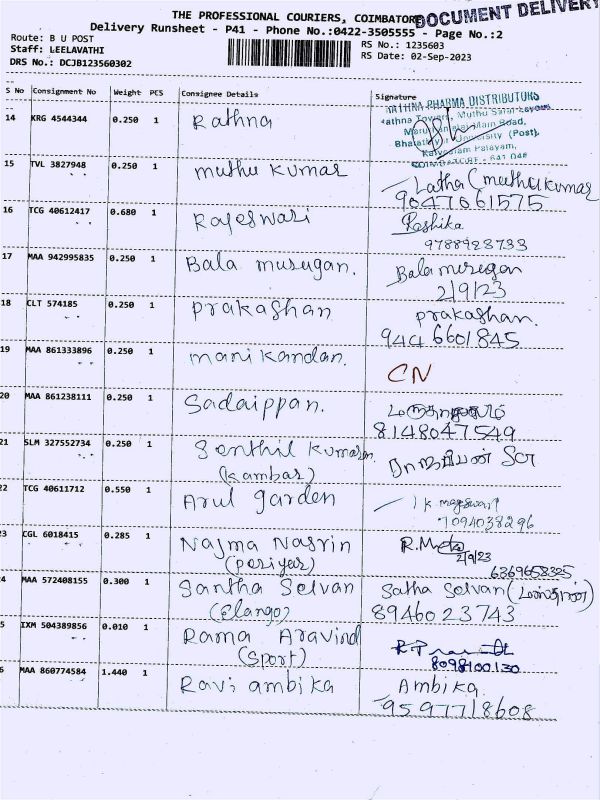 THE PROFESSIONAL COURIERS, COIMBATORE
DOCUMENT DELIVERY
Delivery Runsheet - P41 - Phone No.:0422-3505555 - Page No.:2
Route: B U POST
RS No.: 1235603
Staff: LEELAVATHI
RS Date: 02-Sep-2023
DRS No.: DCJB123560302
S No Consignment No Weight PCS Consignee Details Signature
14 KRG 4544344 0.250 1 Rathna
RATHNA PHARMA DISTRIBUTORS
Road,
University (Post),
Palayam,
15 TVL 3827948 0.250 1 muthu kumar
Latha (muthukumar
9047061575
16 TCG 40612417 0.680 1 Rajeswari
Reshika
9788923733
17 MAA 942995835 0.250 1 Bala murugan.
Balamurugan
2/9/23
18 CLT 574185 0.250 1 prakashan
prakashan.
9446601845
19 MAA 861333896 0.250 1 manikandan.
CN
20 MAA 861238111 0.250 1 Sadaippan.
8148047549
21 SLM 327552734 0.250 1 Senthil kumaran
(kambar)
22 TCG 40611712 0.550 1 Arul garden
7094038296
23 CGL 6018415 0.285 1 Najma Nasrin
(periyar)
2/9/23
6369658325
24 MAA 572408155 0.300 1 Santha Selvan
(Elango)
Satha Selvan
8946023743
25 IXM 504389856 0.010 1 Rama Aravind
(Sport)
8098100130
26 MAA 860774584 1.440 1 Ravi ambika
Ambika
9597718608